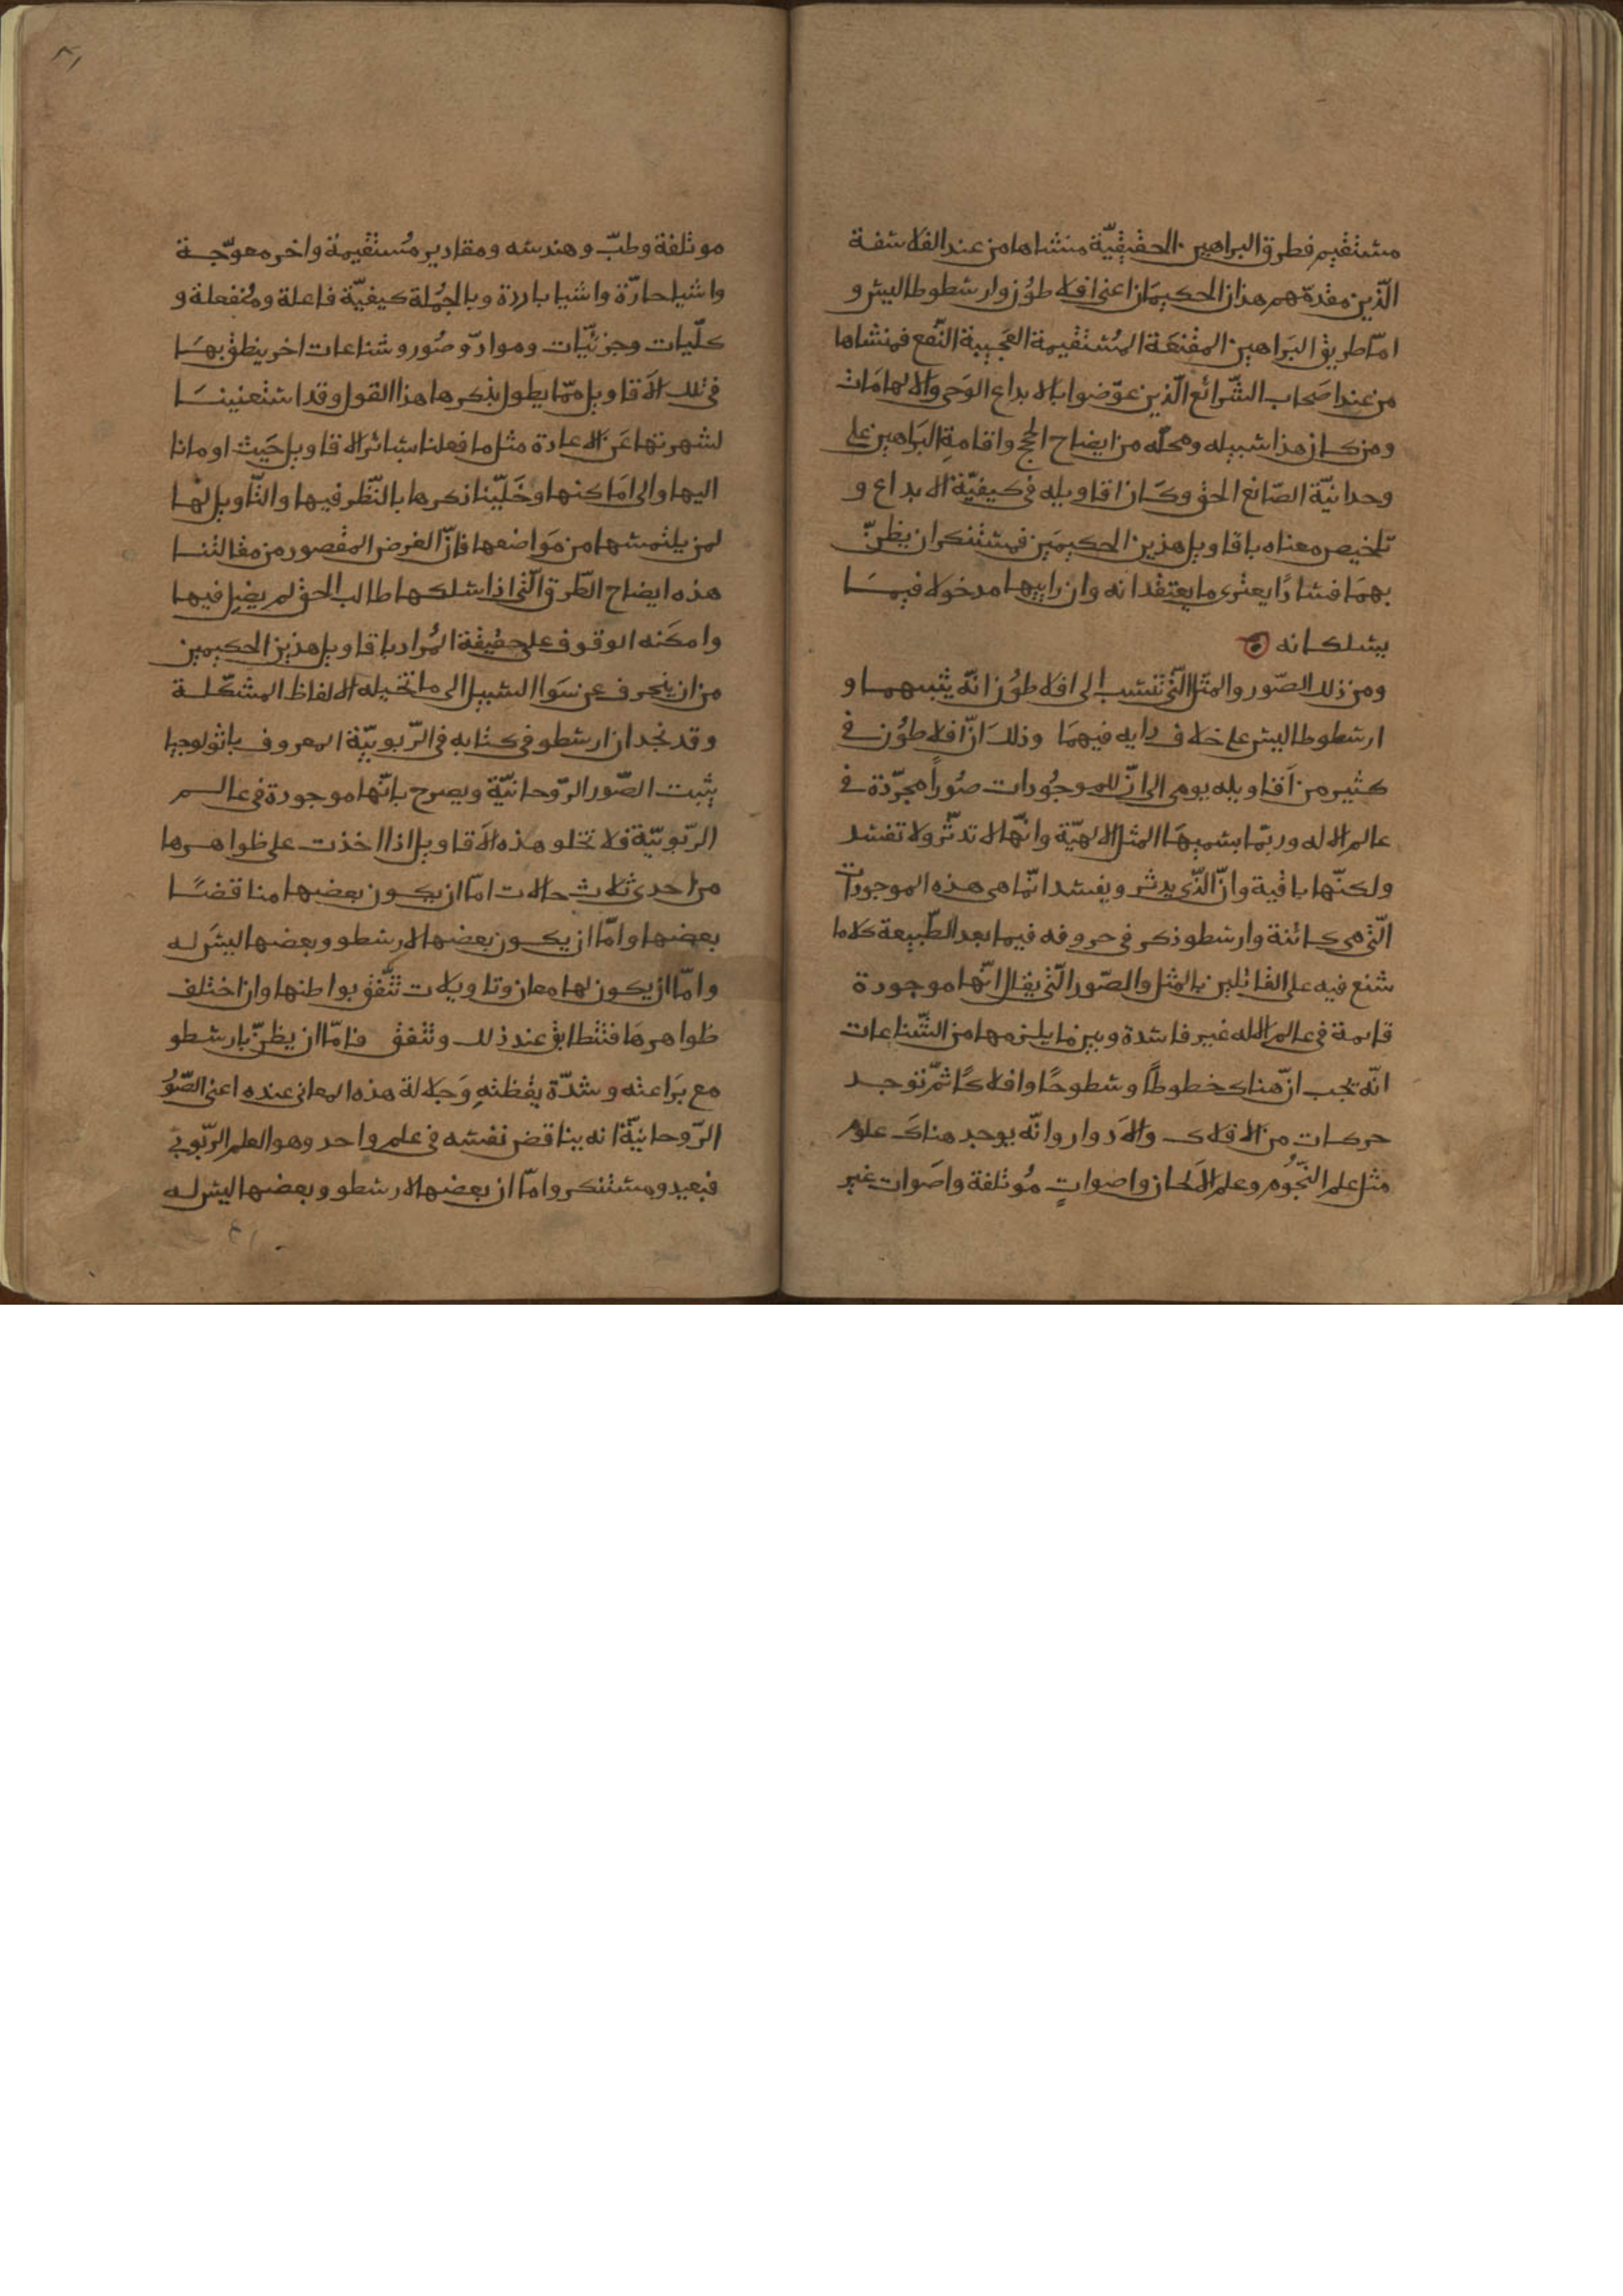 مستقيم فطرق البراهين الحقيقيّة منشاها من عند الفلاسفة
الّذين مقدمهم هذان الحكيمان اعنى افلاطُون وارسطوطاليس و
امّا طريق البَراهين المقنعَة المُستقيمة العَجيبة النّفع فمنشاها
من عند اصَحاب الشّرائع الّذين عوّضوا بالابداع الوَحى والالهامَات
ومن كان هذا سبيله ومحلّه من ايضاح الحجج واقامةِ البَراهين على
وحدانيّة الصّانع الحق وكَان اقاويله فى كيفيّة الابداع و
تلخيص معناه باقاويل هذين الحكيمَين فمستنكر ان يظنّ
بهمَا فسَادًا يعترى ما يعتقدانه وان راييهما مدخولا فيمَا
يسلكانه
ومن ذلك الصّور والمثل الّتى تنسَب الى افلاطوُن انّه يثبتهما و
ارسطوطاليس على خلاف رايه فيهمَا وذلكَ انّ افلاطوُن فى
كثير من اَقاويله يومى الى انّ للموجُودات صُوراً مجرّدة فى
عالم الاله وربّما يسميهَا المثل الالهيّة وانّها لا تدثّر ولا تفسد
ولكنّها باقية وانّ الذّى يدثر ويفسد انّما هى هذه الموجودات
الّتى هى كائنة وارسطو ذكر فى حروفه فيما بعد الطّبيعة كلاما
شنع فيه على القائلين بالمثل والصّور الّتى يقال انّها موجودة
قايمة فى عالم الاله غير فاسدة وبين ما يلزمها من الشّناعات
انّه تجب انّ هناك خطوطًا وسطوحًا وافلاكًا ثمّ توجد
حركات من الافلاك والاَدوار وانّه يوجد هناكَ علوم
مثل علم النّجُوم وعلم الاَلحان واصواتٍ مُوتلفة واصَوات غير
موتلفة وطبّ وهندسه ومقادير مُستقيمة واخر معوّجة
واشيا حارّة واشيا باردة وبالجمُلة كيفيّة فاعلة ومُنفعلة و
كلّيات وجزئيّات وموادّ وصُور وشناعات اخر ينطق بهَا
فى تلك الاَقاويل ممّا يطول بذكرها هذا القول وقد استغنينَا
لشهرتها عَن الاعادة مثل ما فعلنا بسَائر الاقاويل حَيث اومانا
اليها والى امَاكنها وخَلّينا ذكرها بالنّظر فيها والتّاويل لها
لمن يلتمسها من مَواضعها فانّ الغرض المقصود من مقالتنا
هذه ايضاح الطّرق الّتى اذا سلكها طالب الحق لم يضِل فيها
وامكَنه الوقوف على حقيقة المُراد باقاويل هذين الحكيمين
من ان ينحرف عن سَواالسبيل الى ما تخيله الالفاظ المشكّلة
وقد نجد ان ارسطو فى كتابه فى الرّبوبيّة المعروف باثولوجيا
يثبت الصّور الرّوحانيّة ويصرح بانّها موجودة فى عالم
الرّبوبيّة فلا تخلو هذه الاَقاويل اذا اخذت على ظواهرها
من احدى ثلاث حالات امّا ان يكون بعضها مناقضًا
بعضها وامّا ان يكون بعضها لارسطو وبعضها ليسَ له
وامّا ان يكون لها معان وتاويلات تتّفق بواطنها وان اختلف
ظواهرهَا فتتطابق عند ذلك وتتفق فامّا ان يظنّ بارسطو
مع بَراعته وشدّة يقظتهِ وَجلالة هذه المعانى عنده اعنى الصّوُر
الرّوحانيّة انه يناقض نفسه فى علم واحد وهو العلم الرّبوبى
فبعيد ومستنكر وامّا ان بعضها لارسطو وبعضها ليس له